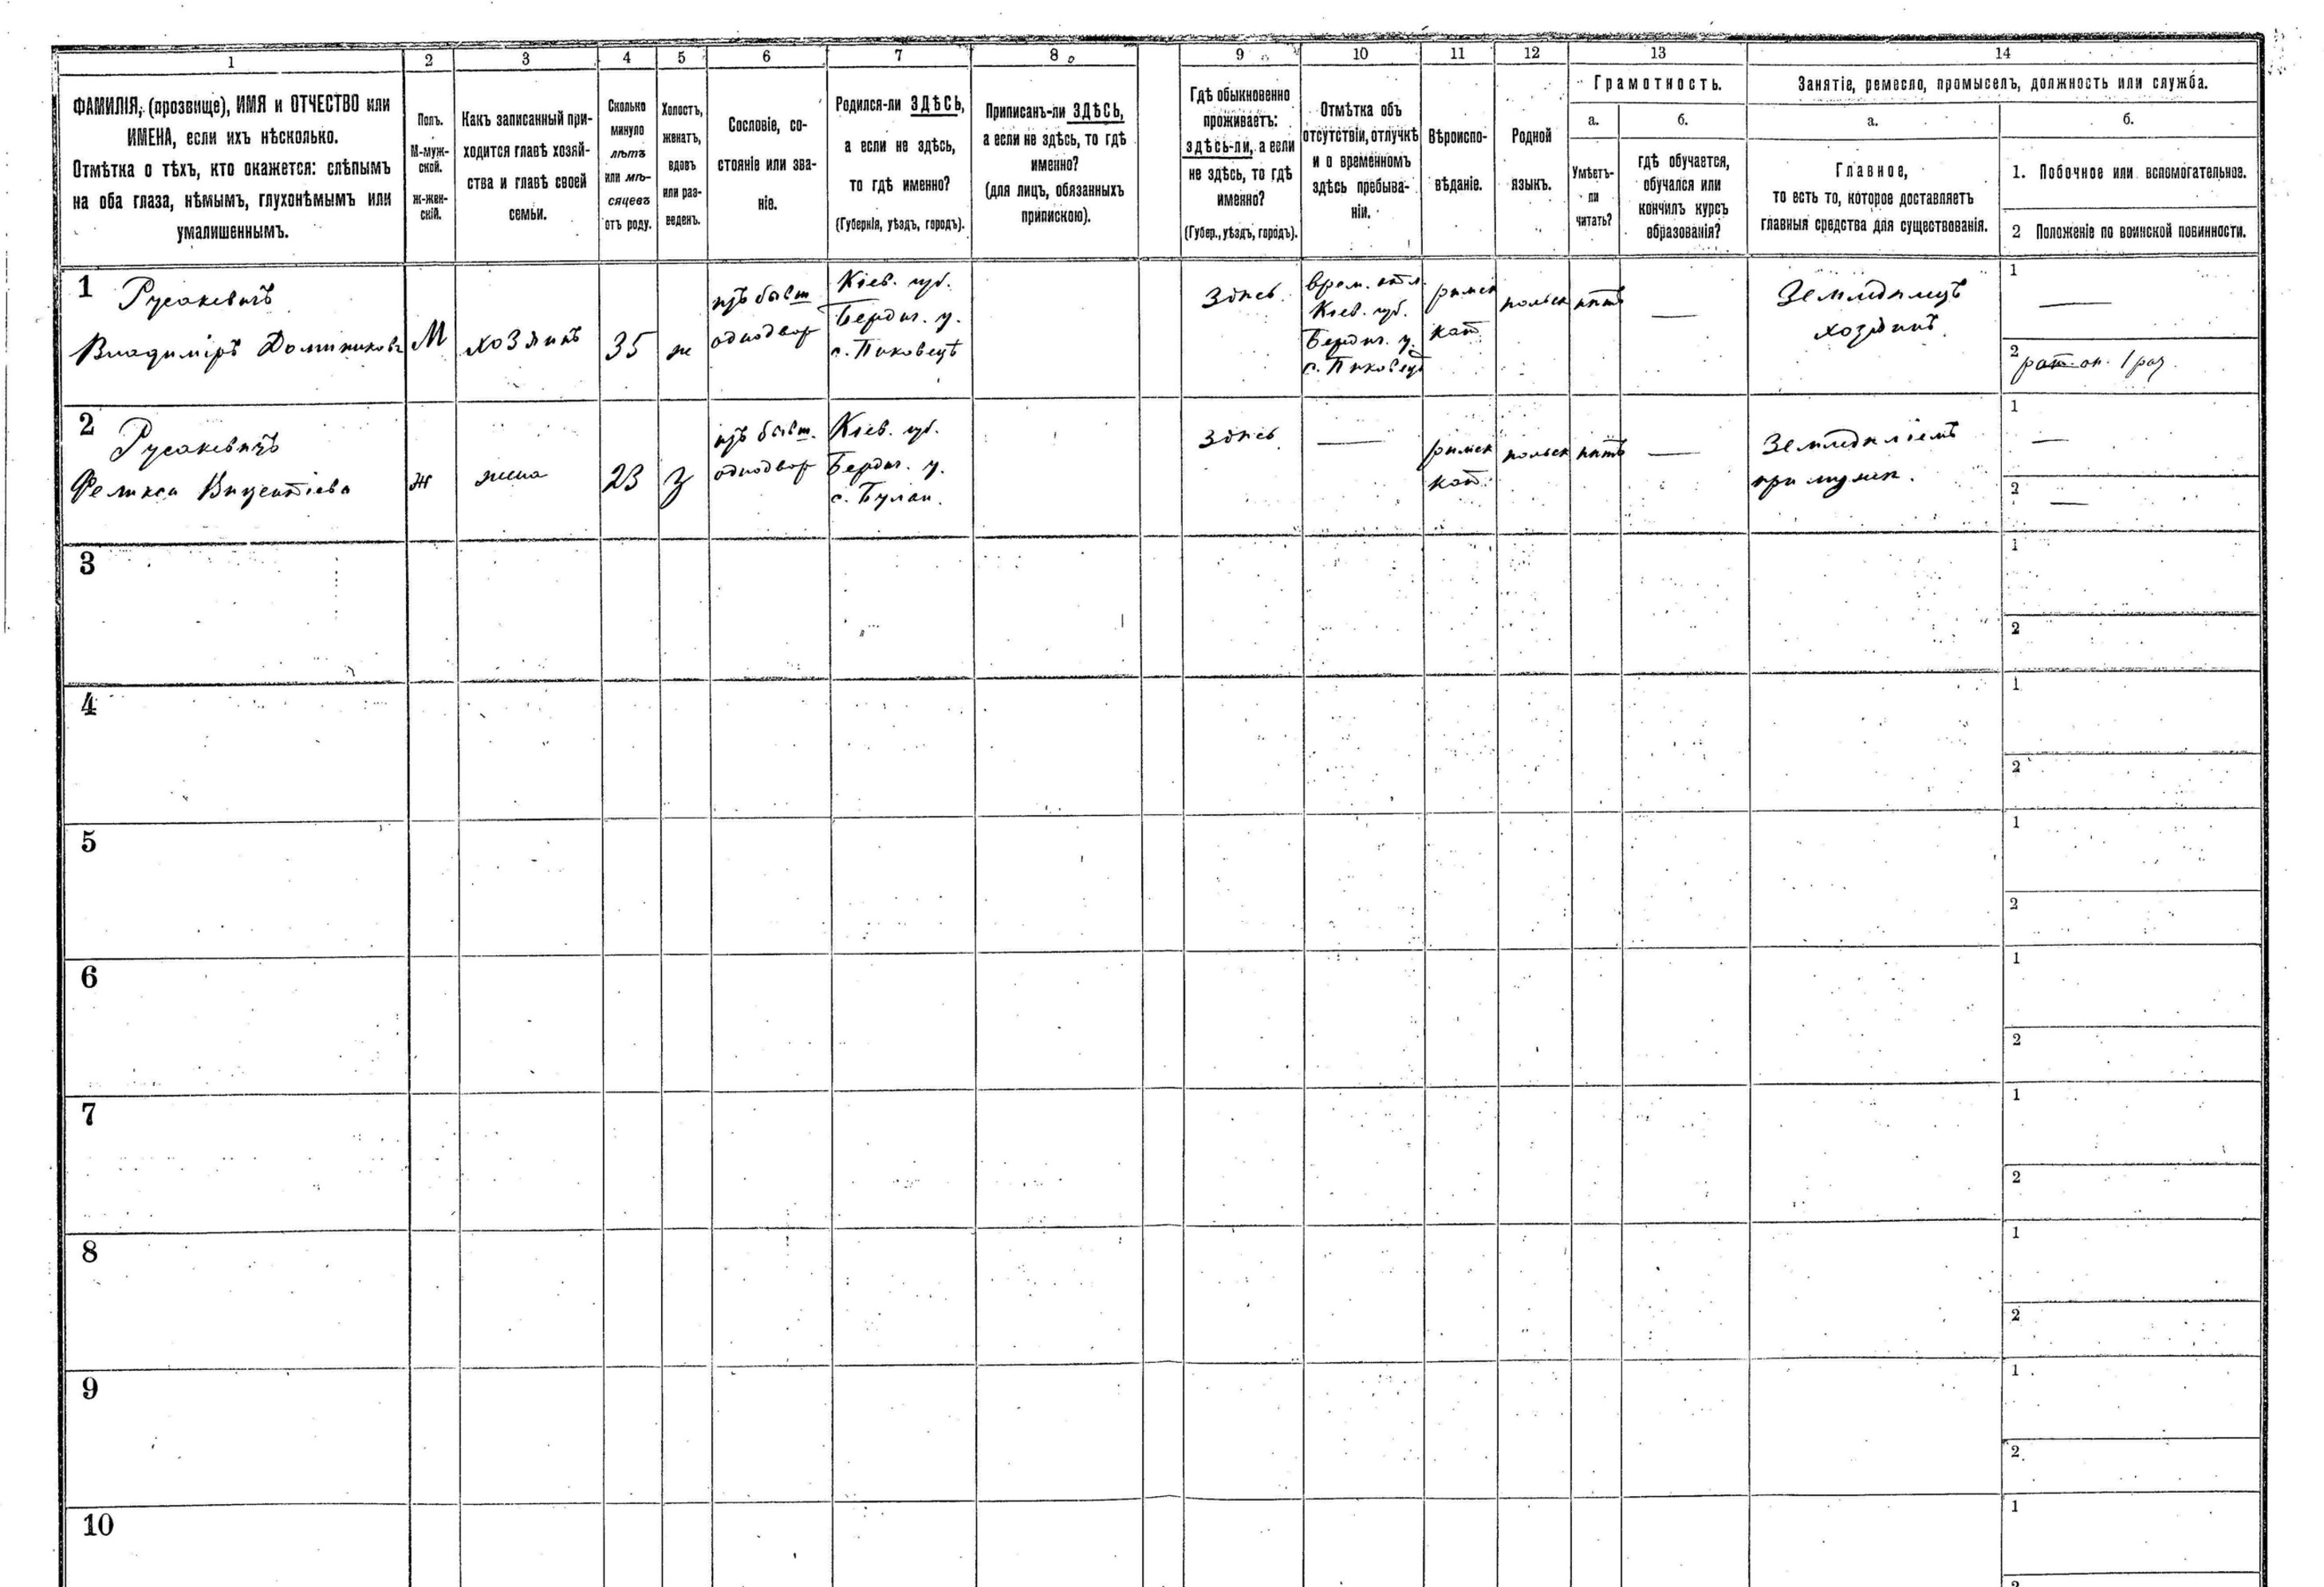 1 2 3 4 5 6 7 8 9 10 11 12 13 14
ФАМИЛІЯ, (прозвище), ИМЯ и ОТЧЕСТВО или
ИМЕНА, если ихъ нѣсколько.
Отмѣтка о тѣхъ, кто окажется: слѣпымъ
на оба глаза, нѣмымъ, глухонѣмымъ или
умалишеннымъ.
Полъ.
М-муж-
ской.
Ж-жен-
скій.
Какъ записанный при-
ходится главѣ хозяй-
ства и главѣ своей
семьи.
Сколько
минуло
лѣтъ
или мѣ-
сяцевъ
отъ роду.
Холостъ,
женатъ,
вдовъ
или раз-
веденъ.
Сословіе, со-
стояніе или зва-
ніе.
Родился-ли ЗДѢСЬ,
а если не здѣсь,
то гдѣ именно?
(Губернія, уѣздъ, городъ).
Приписанъ-ли ЗДѢСЬ,
а если не здѣсь, то гдѣ
именно?
(для лицъ, обязанныхъ
припискою).
Гдѣ обыкновенно
проживаетъ:
здѣсь-ли, а если
не здѣсь, то гдѣ
именно?
(Губер., уѣздъ, городъ).
Отмѣтка объ
отсутствіи, отлучкѣ
и о временномъ
здѣсь пребыва-
ніи.
Вѣроиспо-
вѣданіе.
Родной
языкъ.
Грамотность.
а.
Умѣетъ-
ли
читать?
б.
гдѣ обучается,
обучался или
кончилъ курсъ
образованія?
Занятіе, ремесло, промыселъ, должность или служба.
а.
Главное,
то есть то, которое доставляетъ
главныя средства для существованія.
б.
1. Побочное или вспомогательное.
2 Положеніе по воинской повинности.
1
Русакевичъ
Владиміръ Доминиковъ
М
хозяинъ
35
ж
изъ бывш
однодвор
Кіев. губ.
Бердич. у.
с. Пиковецъ
Здѣсь
врем. отл.
Кіев. губ.
Бердич. у.
с. Пиковецъ
римск
кат.
польск
нѣтъ
—
Земледѣлецъ
хозяинъ
1
—
2
рат. оп. 1 раз.
2
Русакевичъ
Феликса Викентіева
ж
жена
23
з
изъ бывш.
однодвор
Кіев. губ.
Бердич. у.
с. Булаи.
Здѣсь
—
римск
кат.
польск
нѣтъ
—
Земледѣліемъ
при мужѣ.
1
—
2
—
3
1
2
4
1
2
5
1
2
6
1
2
7
1
2
8
1
2
9
1
2
10
1
2